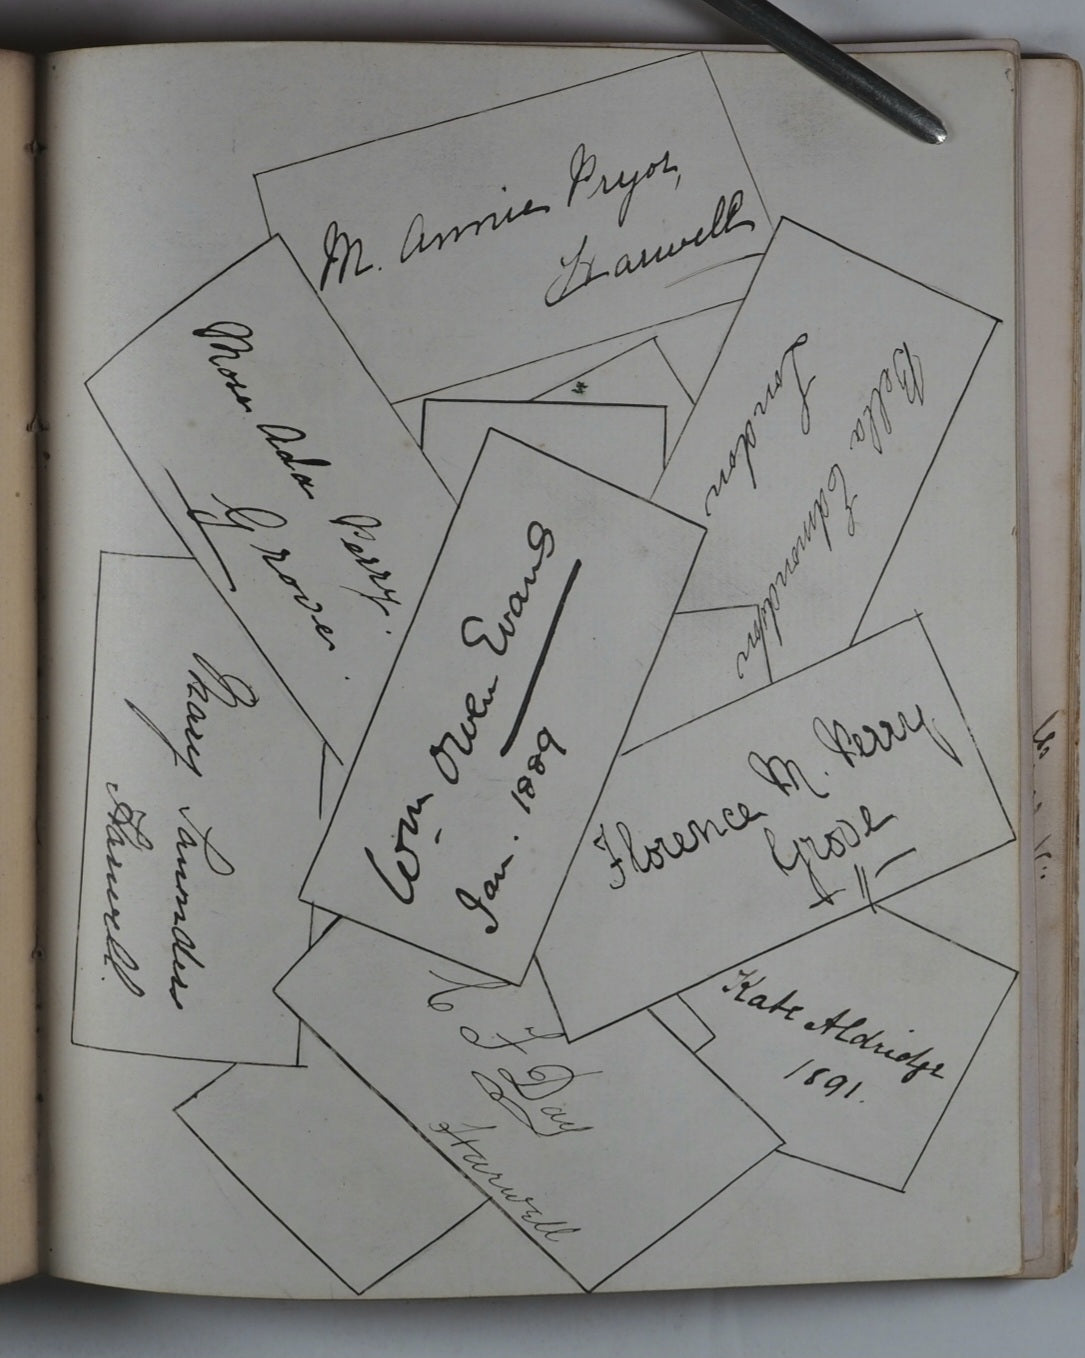 M. Annie Pryor,
Harwell
Mosa Ada Perry.
Grove.
Bella Edmondston
London
Wm Owen Evans
Jan. 1889
Mary Saunders
Harwell.
Florence M. Perry
Grove
C F Day
Harwell
Kate Aldridge
1891.